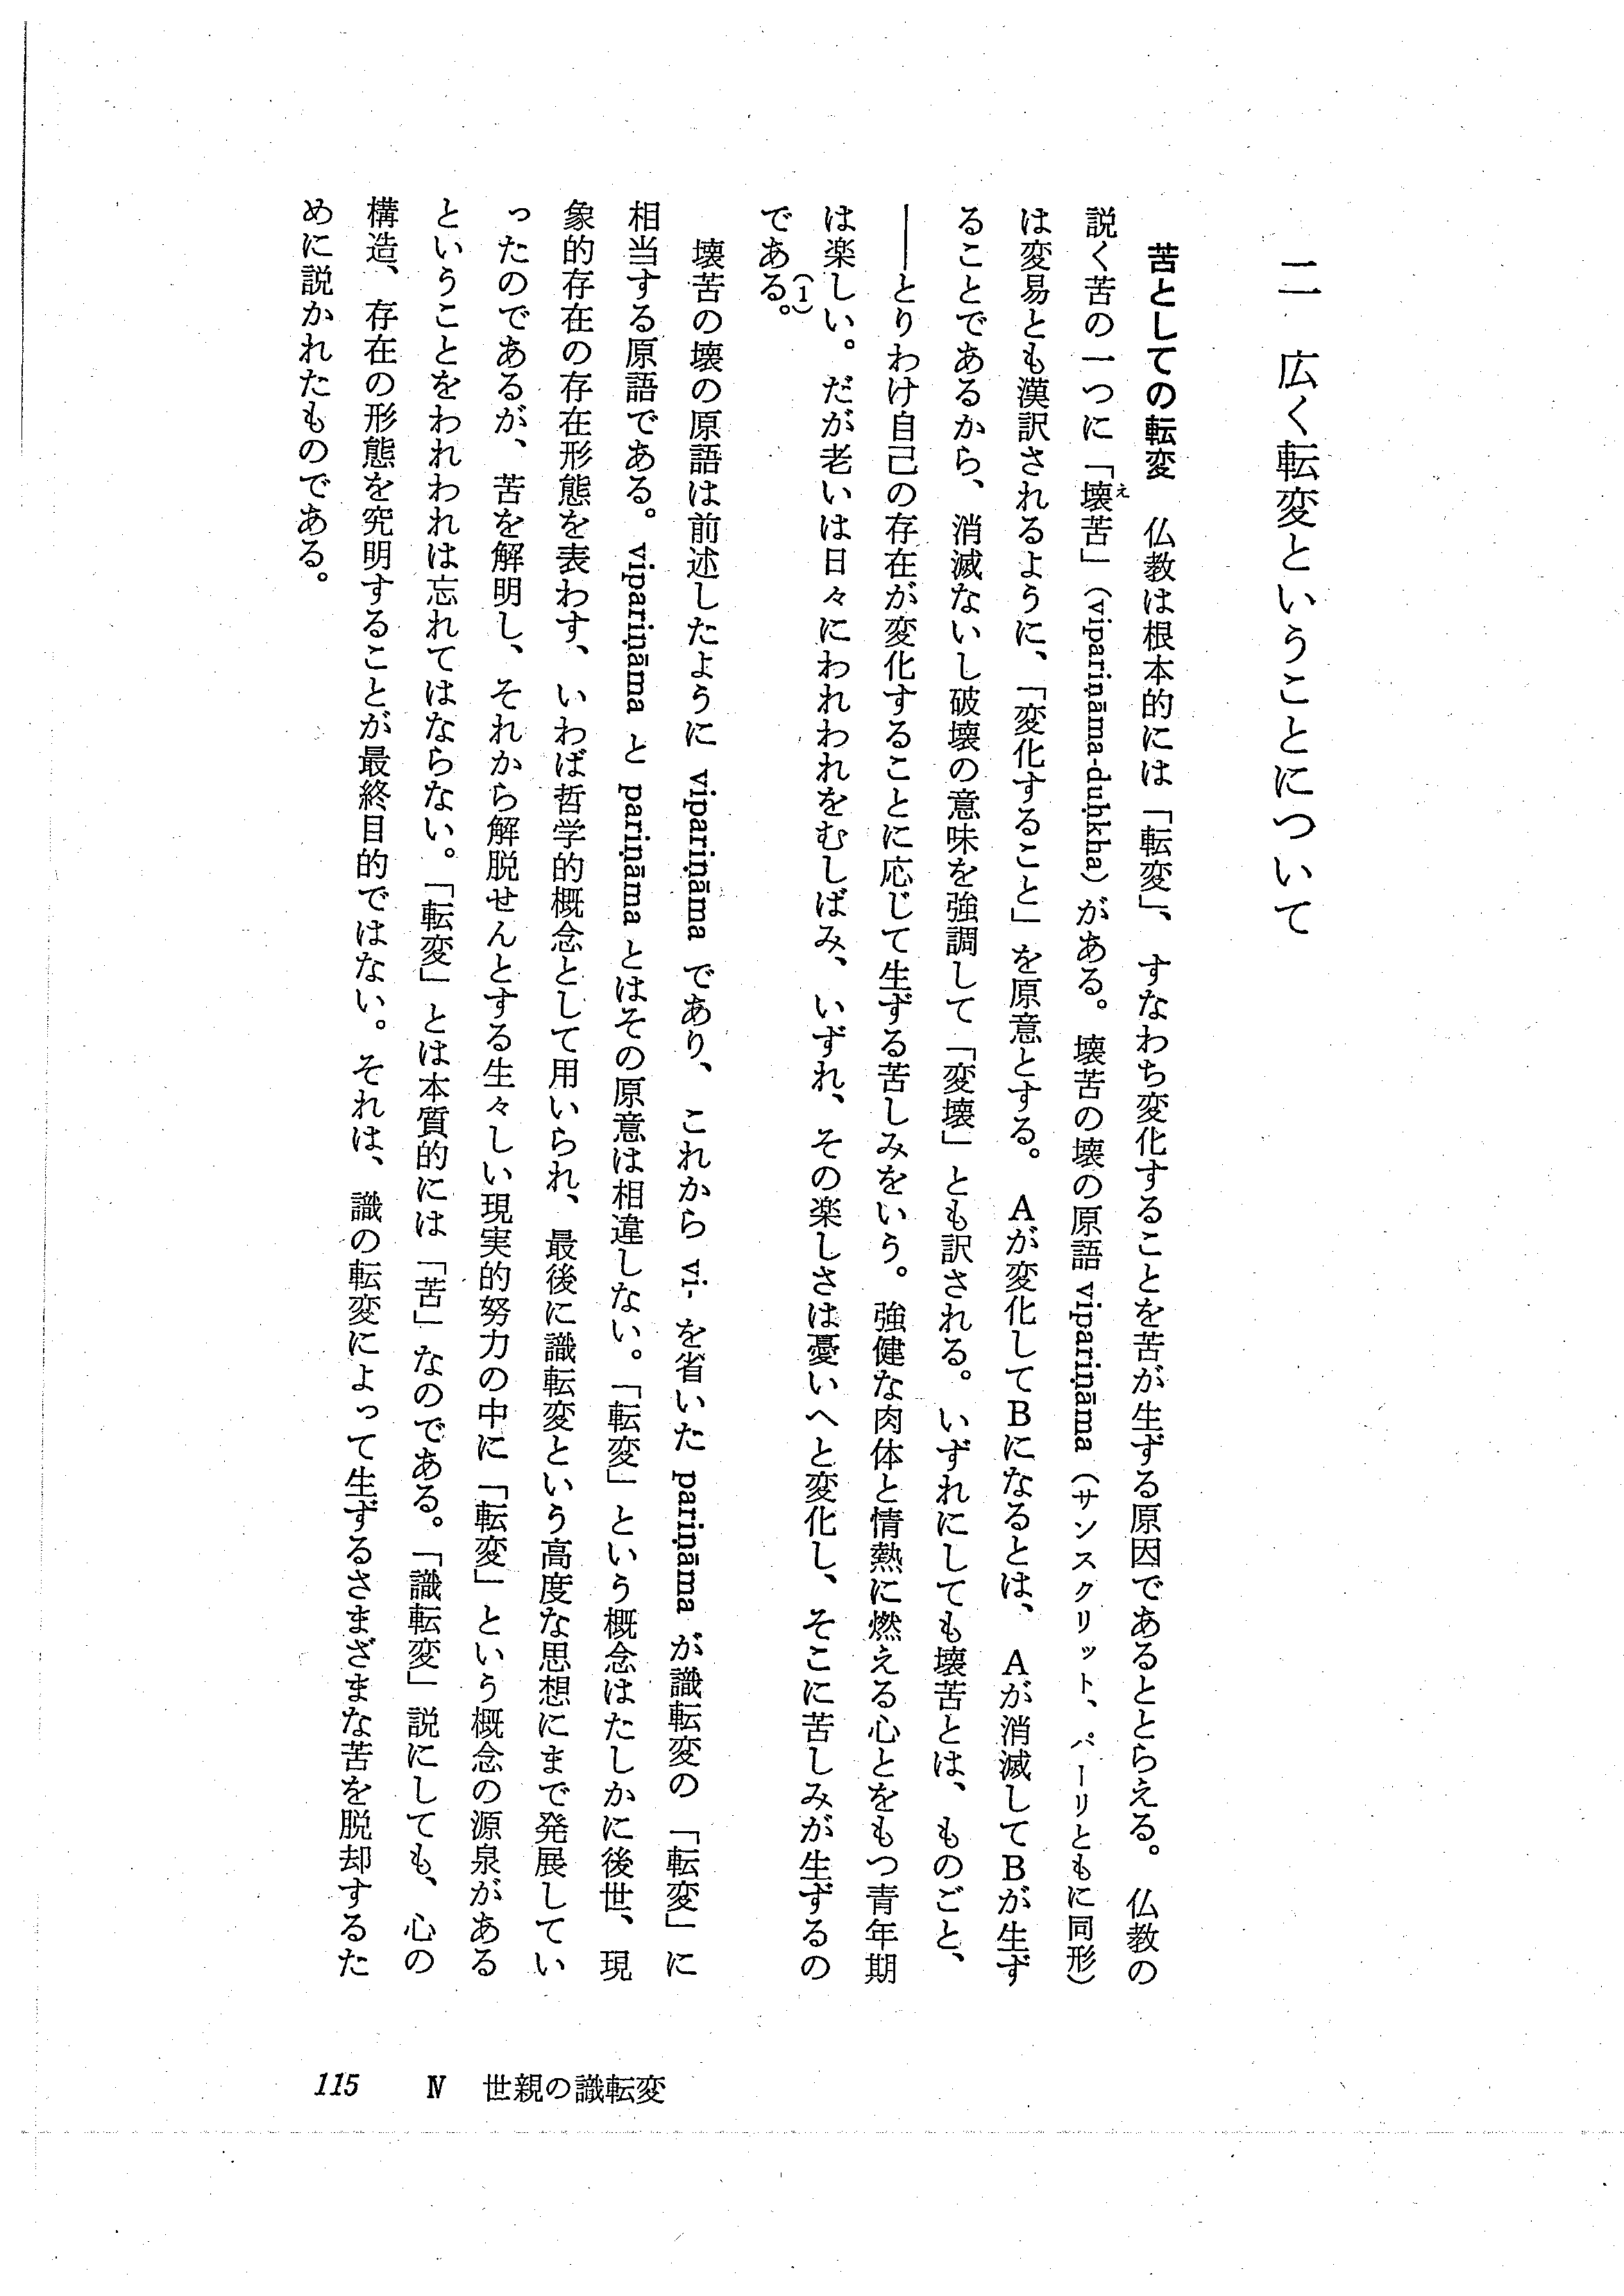 二 広く転変ということについて
苦としての転変 仏教は根本的には「転変」、すなわち変化することを苦が生ずる原因であるととらえる。仏教の
説く苦の一つに「壊苦」（vipariṇāma-duḥkha）がある。壊苦の壊の原語 vipariṇāma（サンスクリット、パーリともに同形）
え
は変易とも漢訳されるように、「変化すること」を原意とする。Aが変化してBになるとは、Aが消滅してBが生ず
ることであるから、消滅ないし破壊の意味を強調して「変壊」とも訳される。いずれにしても壊苦とは、ものごと、
――とりわけ自己の存在が変化することに応じて生ずる苦しみをいう。強健な肉体と情熱に燃える心とをもつ青年期
は楽しい。だが老いは日々にわれわれをむしばみ、いずれ、その楽しさは憂いへと変化し、そこに苦しみが生ずるの
である。(1)
壊苦の壊の原語は前述したように vipariṇāma であり、これから vi- を省いた pariṇāma が識転変の「転変」に
相当する原語である。vipariṇāma と pariṇāma とはその原意は相違しない。「転変」という概念はたしかに後世、現
象的存在の存在形態を表わす、いわば哲学的概念として用いられ、最後に識転変という高度な思想にまで発展してい
ったのであるが、苦を解明し、それから解脱せんとする生々しい現実的努力の中に「転変」という概念の源泉がある
ということをわれわれは忘れてはならない。「転変」とは本質的には「苦」なのである。「識転変」説にしても、心の
構造、存在の形態を究明することが最終目的ではない。それは、識の転変によって生ずるさまざまな苦を脱却するた
めに説かれたものである。
115 Ⅳ 世親の識転変